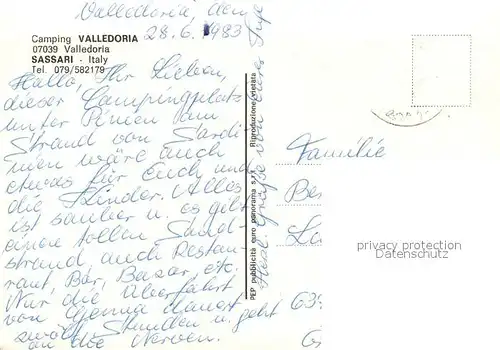 Valledoria, den
28.6.1983
Camping VALLEDORIA
07039 Valledoria
SASSARI - Italy
Tel. 079/582179
Hallo, Ihr Lieben,
dieser Campingplatz
unter Pinien am
Strand von Sardi-
nien wäre auch
etwas für Euch und
die Kinder. Alles
ist sauber u. es gibt
einen tollen Sand-
strand auch Restau-
rant, Bar, Bazar, etc.
Nur die Überfahrt
von Genua dauert
zwölf Stunden u. geht
an die Nerven.
Grüße von
PEP pubblicità euro panorama s.r.l. Riproduzione vietata
Familie
Be
Li
635
G
privacy protection
Datenschutz